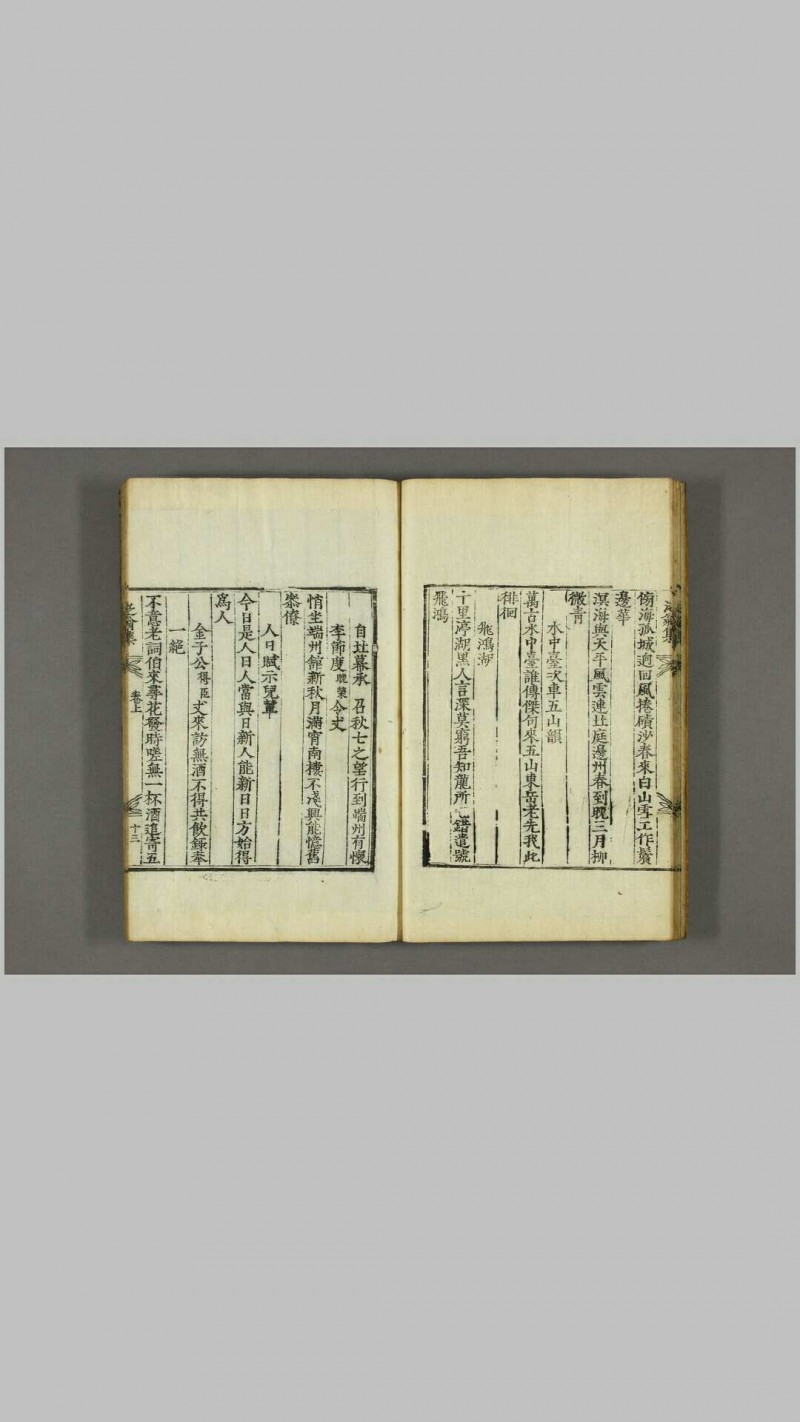 傍海孤城逈回風捲磧沙春來白山雪工作鬢
邊華
溟海與天平風雲連北庭邊州春到晚三月柳
微青
水中臺次車五山韻
萬古水中臺誰傳傑句來五山東岳老先我此
徘徊
飛鴻湖
十里渟湖黑人言深莫窮吾知龍所 錯遣號
飛鴻
自北幕承 召秋七之望行到端州有懷
李節度 令丈
悄坐端州館新秋月滿宵南樓不淺興能憶舊
叅僚
人日賦示兒輩
今日是人日人當與日新人能新日日方始得
爲人
金子公得臣丈來訪無酒不得共飮録奉
一絶
不意老詞伯來尋花發時嗟無一杯酒追寄五
集 卷上 十三